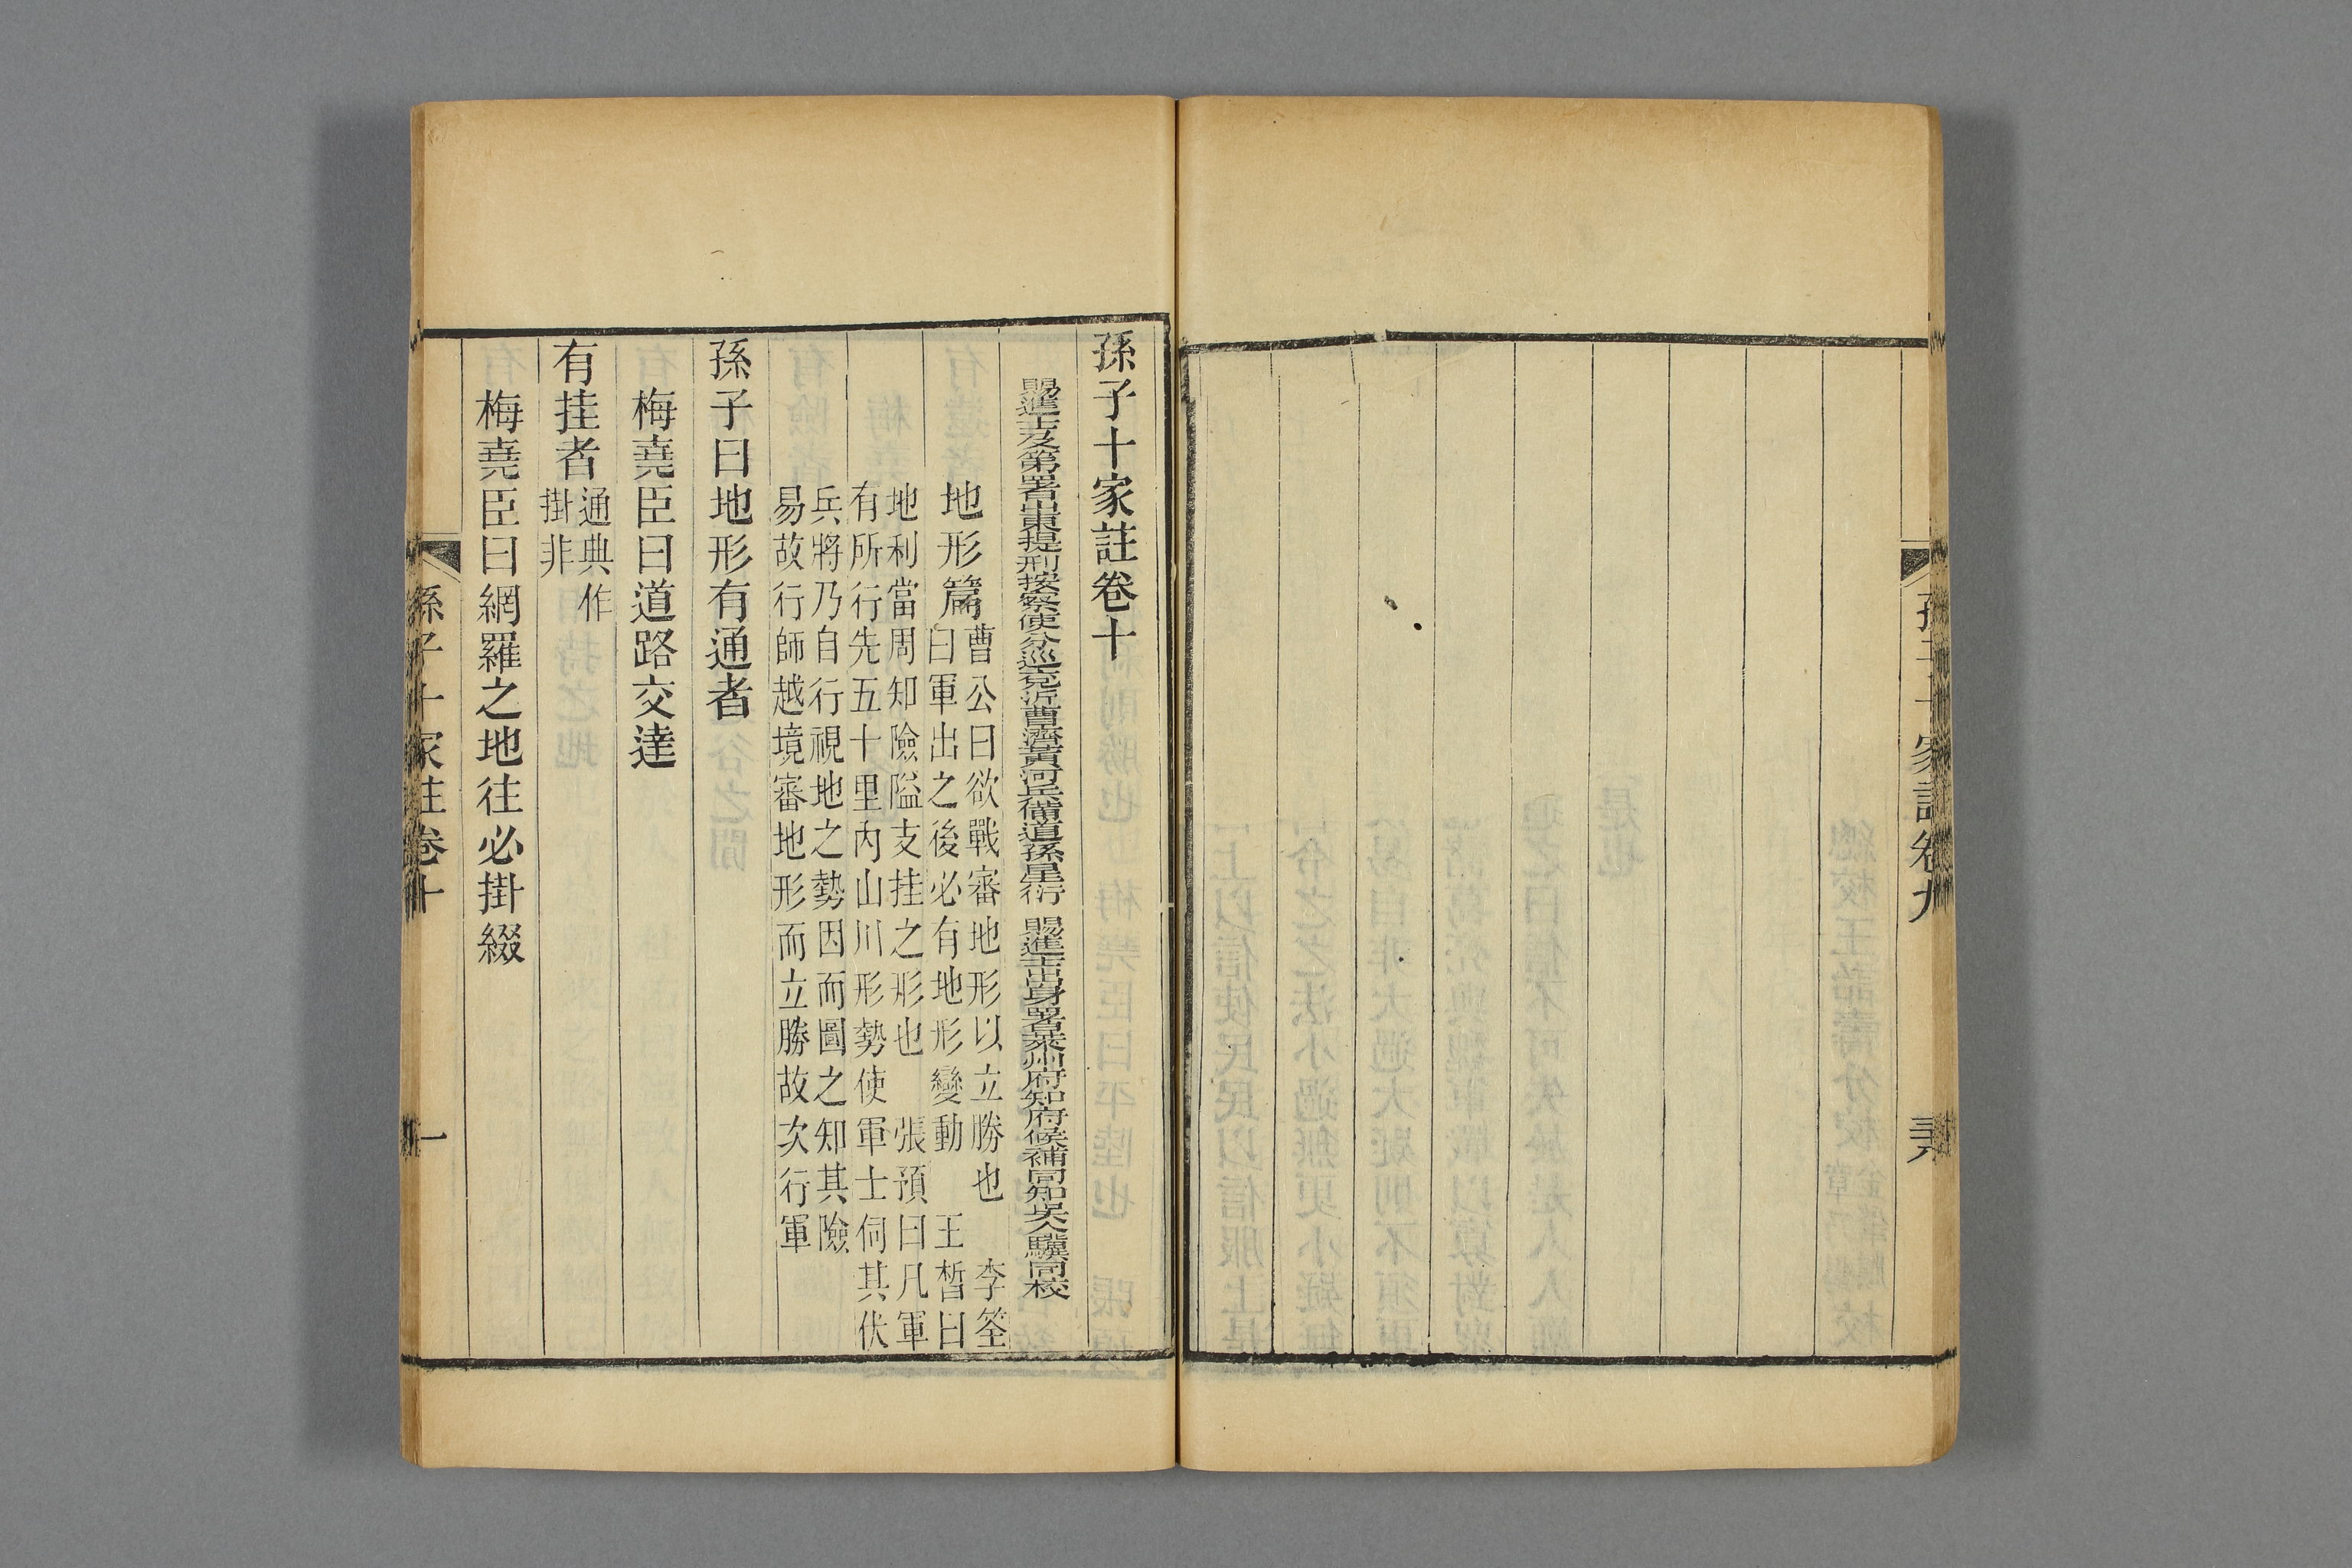 孫子十家註卷十
賜進士及第署山東提刑按察使分巡兗沂曹濟黃河兵備道孫星衍 賜進士出身署萊州府知府候補同知吳人驥同校
地形篇
曹公曰欲戰審地形以立勝也 李筌
曰軍出之後必有地形變動 王晳曰
地利當周知險隘支挂之形也 張預曰凡軍
有所行先五十里內山川形勢使軍士伺其伏
兵將乃自行視地之勢因而圖之知其險
易故行師越境審地形而立勝故次行軍
孫子曰地形有通者
梅堯臣曰道路交達
有挂者
通典作
掛非
梅堯臣曰網羅之地往必掛綴
孫子十家註卷十
一
家註卷九